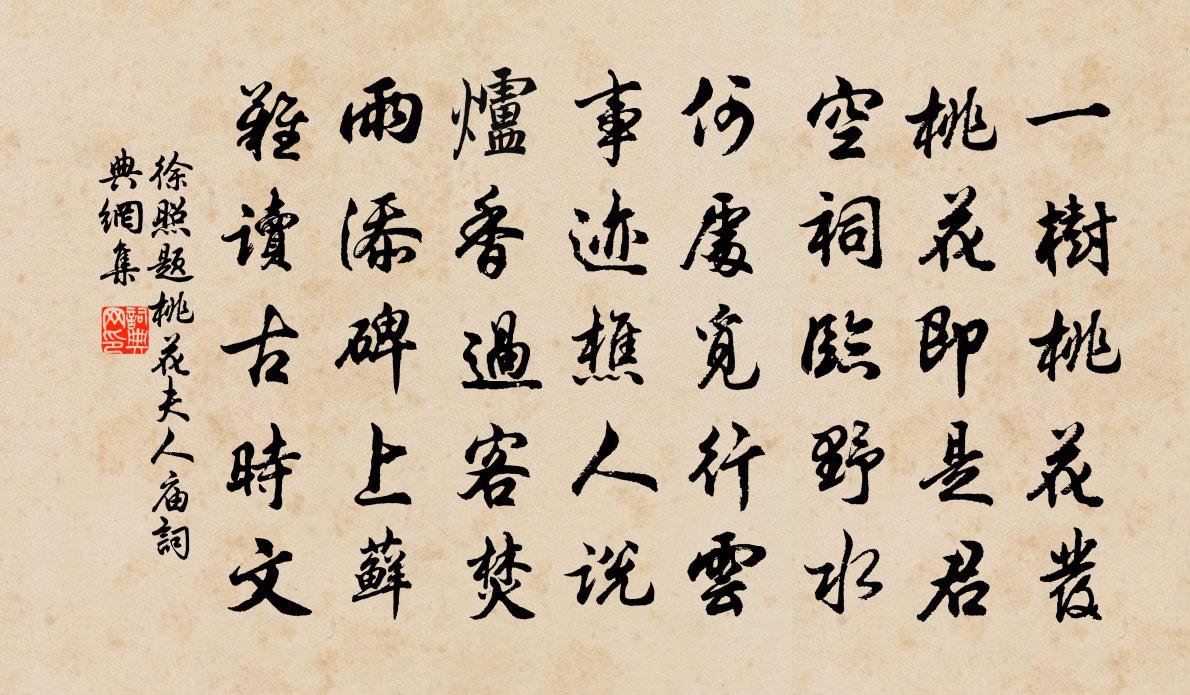 一樹桃花發
桃花即是君
空祠臨野水
何處覓行雲
事迹樵人説
爐香過客焚
雨添碑上蘚
難讀古時文
徐照题桃花夫人庙詞
典網集
詞典网印